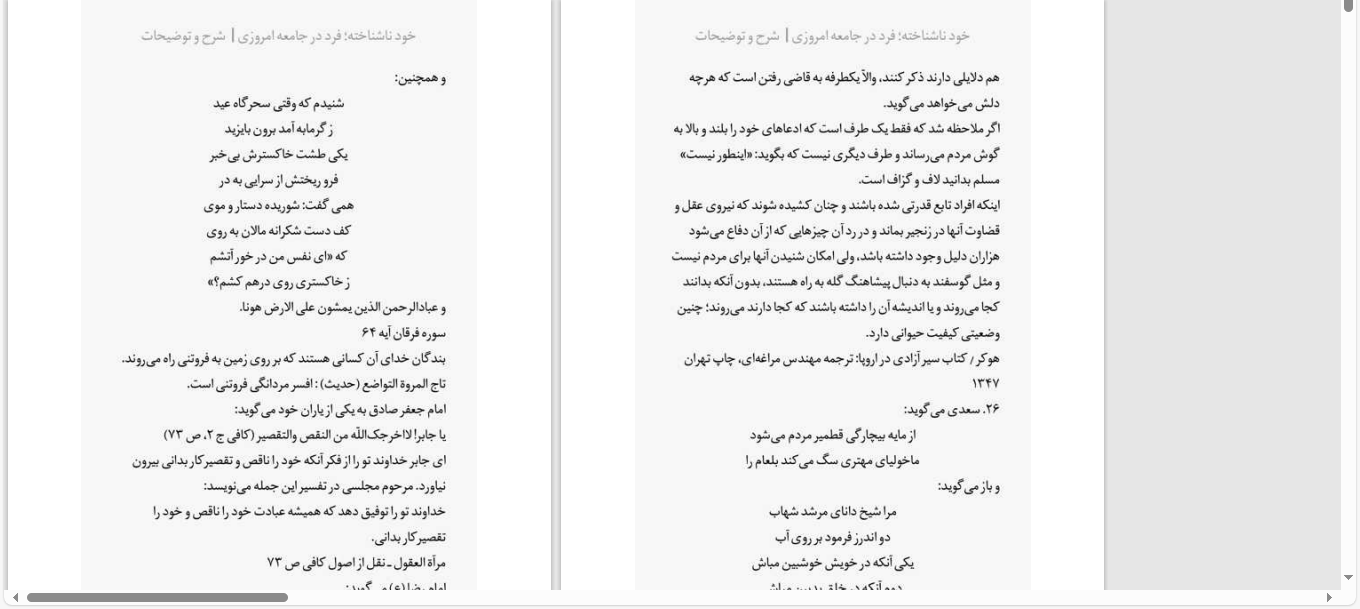 خود ناشناخته؛ فرد در جامعه امروزی | شرح و توضیحات
هم دلایلی دارند ذکر کنند، والاّ یکطرفه به قاضی رفتن است که هرچه
دلش می‌خواهد می‌گوید.
اگر ملاحظه شد که فقط یک طرف است که ادعاهای خود را بلند و بالا به
گوش مردم می‌رساند و طرف دیگری نیست که بگوید: «اینطور نیست»
مسلم بدانید لاف و گزاف است.
اینکه افراد تابع قدرتی شده باشند و چنان کشیده شوند که نیروی عقل و
قضاوت آنها در زنجیر بماند و در رد آن چیزهایی که از آن دفاع می‌شود
هزاران دلیل وجود داشته باشد، ولی امکان شنیدن آنها برای مردم نیست
و مثل گوسفند به دنبال پیشاهنگ گله به راه هستند، بدون آنکه بدانند
کجا می‌روند و یا اندیشه آن را داشته باشند که کجا دارند می‌روند؛ چنین
وضعیتی کیفیت حیوانی دارد.
هوکر / کتاب سیر آزادی در اروپا: ترجمه مهندس مراغه‌ای، چاپ تهران
۱۳۴۷
۲۶. سعدی می‌گوید:
از مایه بیچارگی قطمیر مردم می‌شود
ماخولیای مهتری سگ می‌کند بلعام را
و باز می‌گوید:
مرا شیخ دانای مرشد شهاب
دو اندرز فرمود بر روی آب
یکی آنکه در خویش خوشبین مباش
دوم آنکه در خلق بدبین مباش
خود ناشناخته؛ فرد در جامعه امروزی | شرح و توضیحات
و همچنین:
شنیدم که وقتی سحرگاه عید
ز گرمابه آمد برون بایزید
یکی طشت خاکسترش بی‌خبر
فرو ریختش از سرایی به در
همی گفت: شوریده دستار و موی
کف دست شکرانه مالان به روی
که «ای نفس من در خور آتشم
ز خاکستری روی درهم کشم؟»
و عبادالرحمن الذین یمشون علی الارض هونا.
سوره فرقان آیه ۶۴
بندگان خدای آن کسانی هستند که بر روی زمین به فروتنی راه می‌روند.
تاج المروة التواضع (حدیث) : افسر مردانگی فروتنی است.
امام جعفر صادق به یکی از یاران خود می‌گوید:
یا جابر! لااخرجک‌اللّه من النقص والتقصیر (کافی ج ۲، ص ۷۳)
ای جابر خداوند تو را از فکر آنکه خود را ناقص و تقصیرکار بدانی بیرون
نیاورد. مرحوم مجلسی در تفسیر این جمله می‌نویسد:
خداوند تو را توفیق دهد که همیشه عبادت خود را ناقص و خود را
تقصیرکار بدانی.
مرآة العقول ـ نقل از اصول کافی ص ۷۳
امام رضا (ع) می‌گوید: